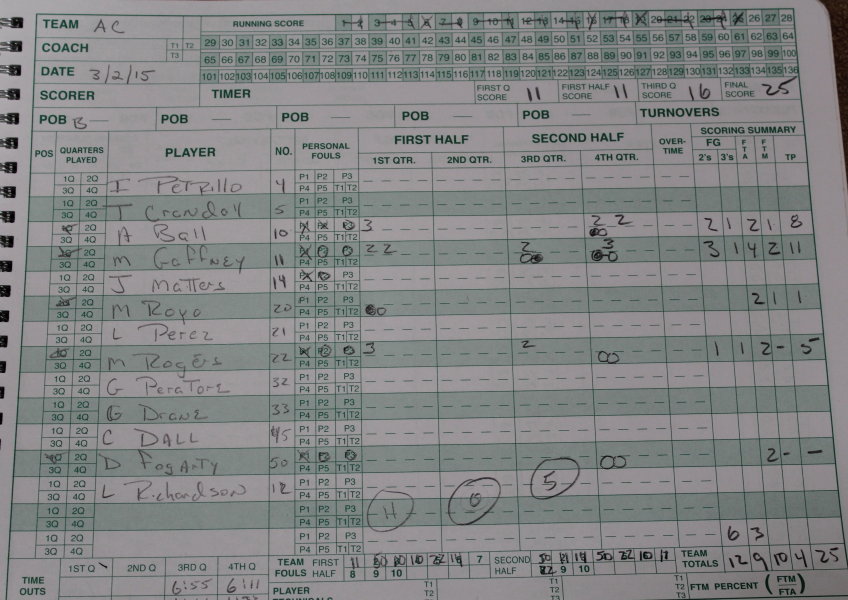 TEAM AC RUNNING SCORE 1 2 3 4 5 6 7 8 9 10 11 12 13 14 15 16 17 18 19 20 21 22 23 24 25 26 27 28
COACH T1 T2 T3 29 30 31 32 33 34 35 36 37 38 39 40 41 42 43 44 45 46 47 48 49 50 51 52 53 54 55 56 57 58 59 60 61 62 63 64
65 66 67 68 69 70 71 72 73 74 75 76 77 78 79 80 81 82 83 84 85 86 87 88 89 90 91 92 93 94 95 96 97 98 99 100
DATE 3/2/15 101 102 103 104 105 106 107 108 109 110 111 112 113 114 115 116 117 118 119 120 121 122 123 124 125 126 127 128 129 130 131 132 133 134 135 136
SCORER TIMER FIRST Q SCORE 11 FIRST HALF SCORE 11 THIRD Q SCORE 16 FINAL SCORE 25
POB B — POB — POB — POB — POB — TURNOVERS
POS QUARTERS PLAYED PLAYER NO. PERSONAL FOULS FIRST HALF 1ST QTR. 2ND QTR. SECOND HALF 3RD QTR. 4TH QTR. OVER-TIME SCORING SUMMARY FG 2's 3's FTA FTM TP
1Q 2Q 3Q 4Q I Petrillo 4 P1 P2 P3 P4 P5 T1 T2
1Q 2Q 3Q 4Q T 5 P1 P2 P3 P4 P5 T1 T2
2Q 3Q 4Q A Ball 10 P4 P5 T1 T2 3 2 2 2 1 2 1 8
2Q 3Q 4Q M Gaffney 11 P4 P5 T1 T2 2 2 2 3 3 1 4 2 11
1Q 2Q 3Q 4Q J Matters 14 P3 P4 P5 T1 T2
2Q 3Q 4Q M Royo 20 P1 P2 P3 P4 P5 T1 T2 2 1 1
1Q 2Q 3Q 4Q L Perez 21 P1 P2 P3 P4 P5 T1 T2
2Q 3Q 4Q M Rogers 22 P4 P5 T1 T2 3 2 OO 1 1 2 - 5
1Q 2Q 3Q 4Q G Peratore 32 P1 P2 P3 P4 P5 T1 T2
1Q 2Q 3Q 4Q G Drane 33 P1 P2 P3 P4 P5 T1 T2
1Q 2Q 3Q 4Q C DALL 45 P1 P2 P3 P4 P5 T1 T2
2Q 3Q 4Q D Fogarty 50 P3 P4 P5 T1 T2 OO 2 - -
1Q 2Q 3Q 4Q L Richardson 12 P1 P2 P3 P4 P5 T1 T2
1Q 2Q 3Q 4Q P1 P2 P3 P4 P5 T1 T2 11 0 5
1Q 2Q 3Q 4Q P1 P2 P3 P4 P5 T1 T2 6 3
TIME OUTS 1ST Q 2ND Q 3RD Q 4TH Q TEAM FOULS FIRST HALF 7 8 9 10 SECOND HALF 9 10 TEAM TOTALS 12 9 10 4 25
6:55 6:11 PLAYER T1 T2 T1 T2 T3 T1 T2 T3 FTM PERCENT (FTM/FTA)